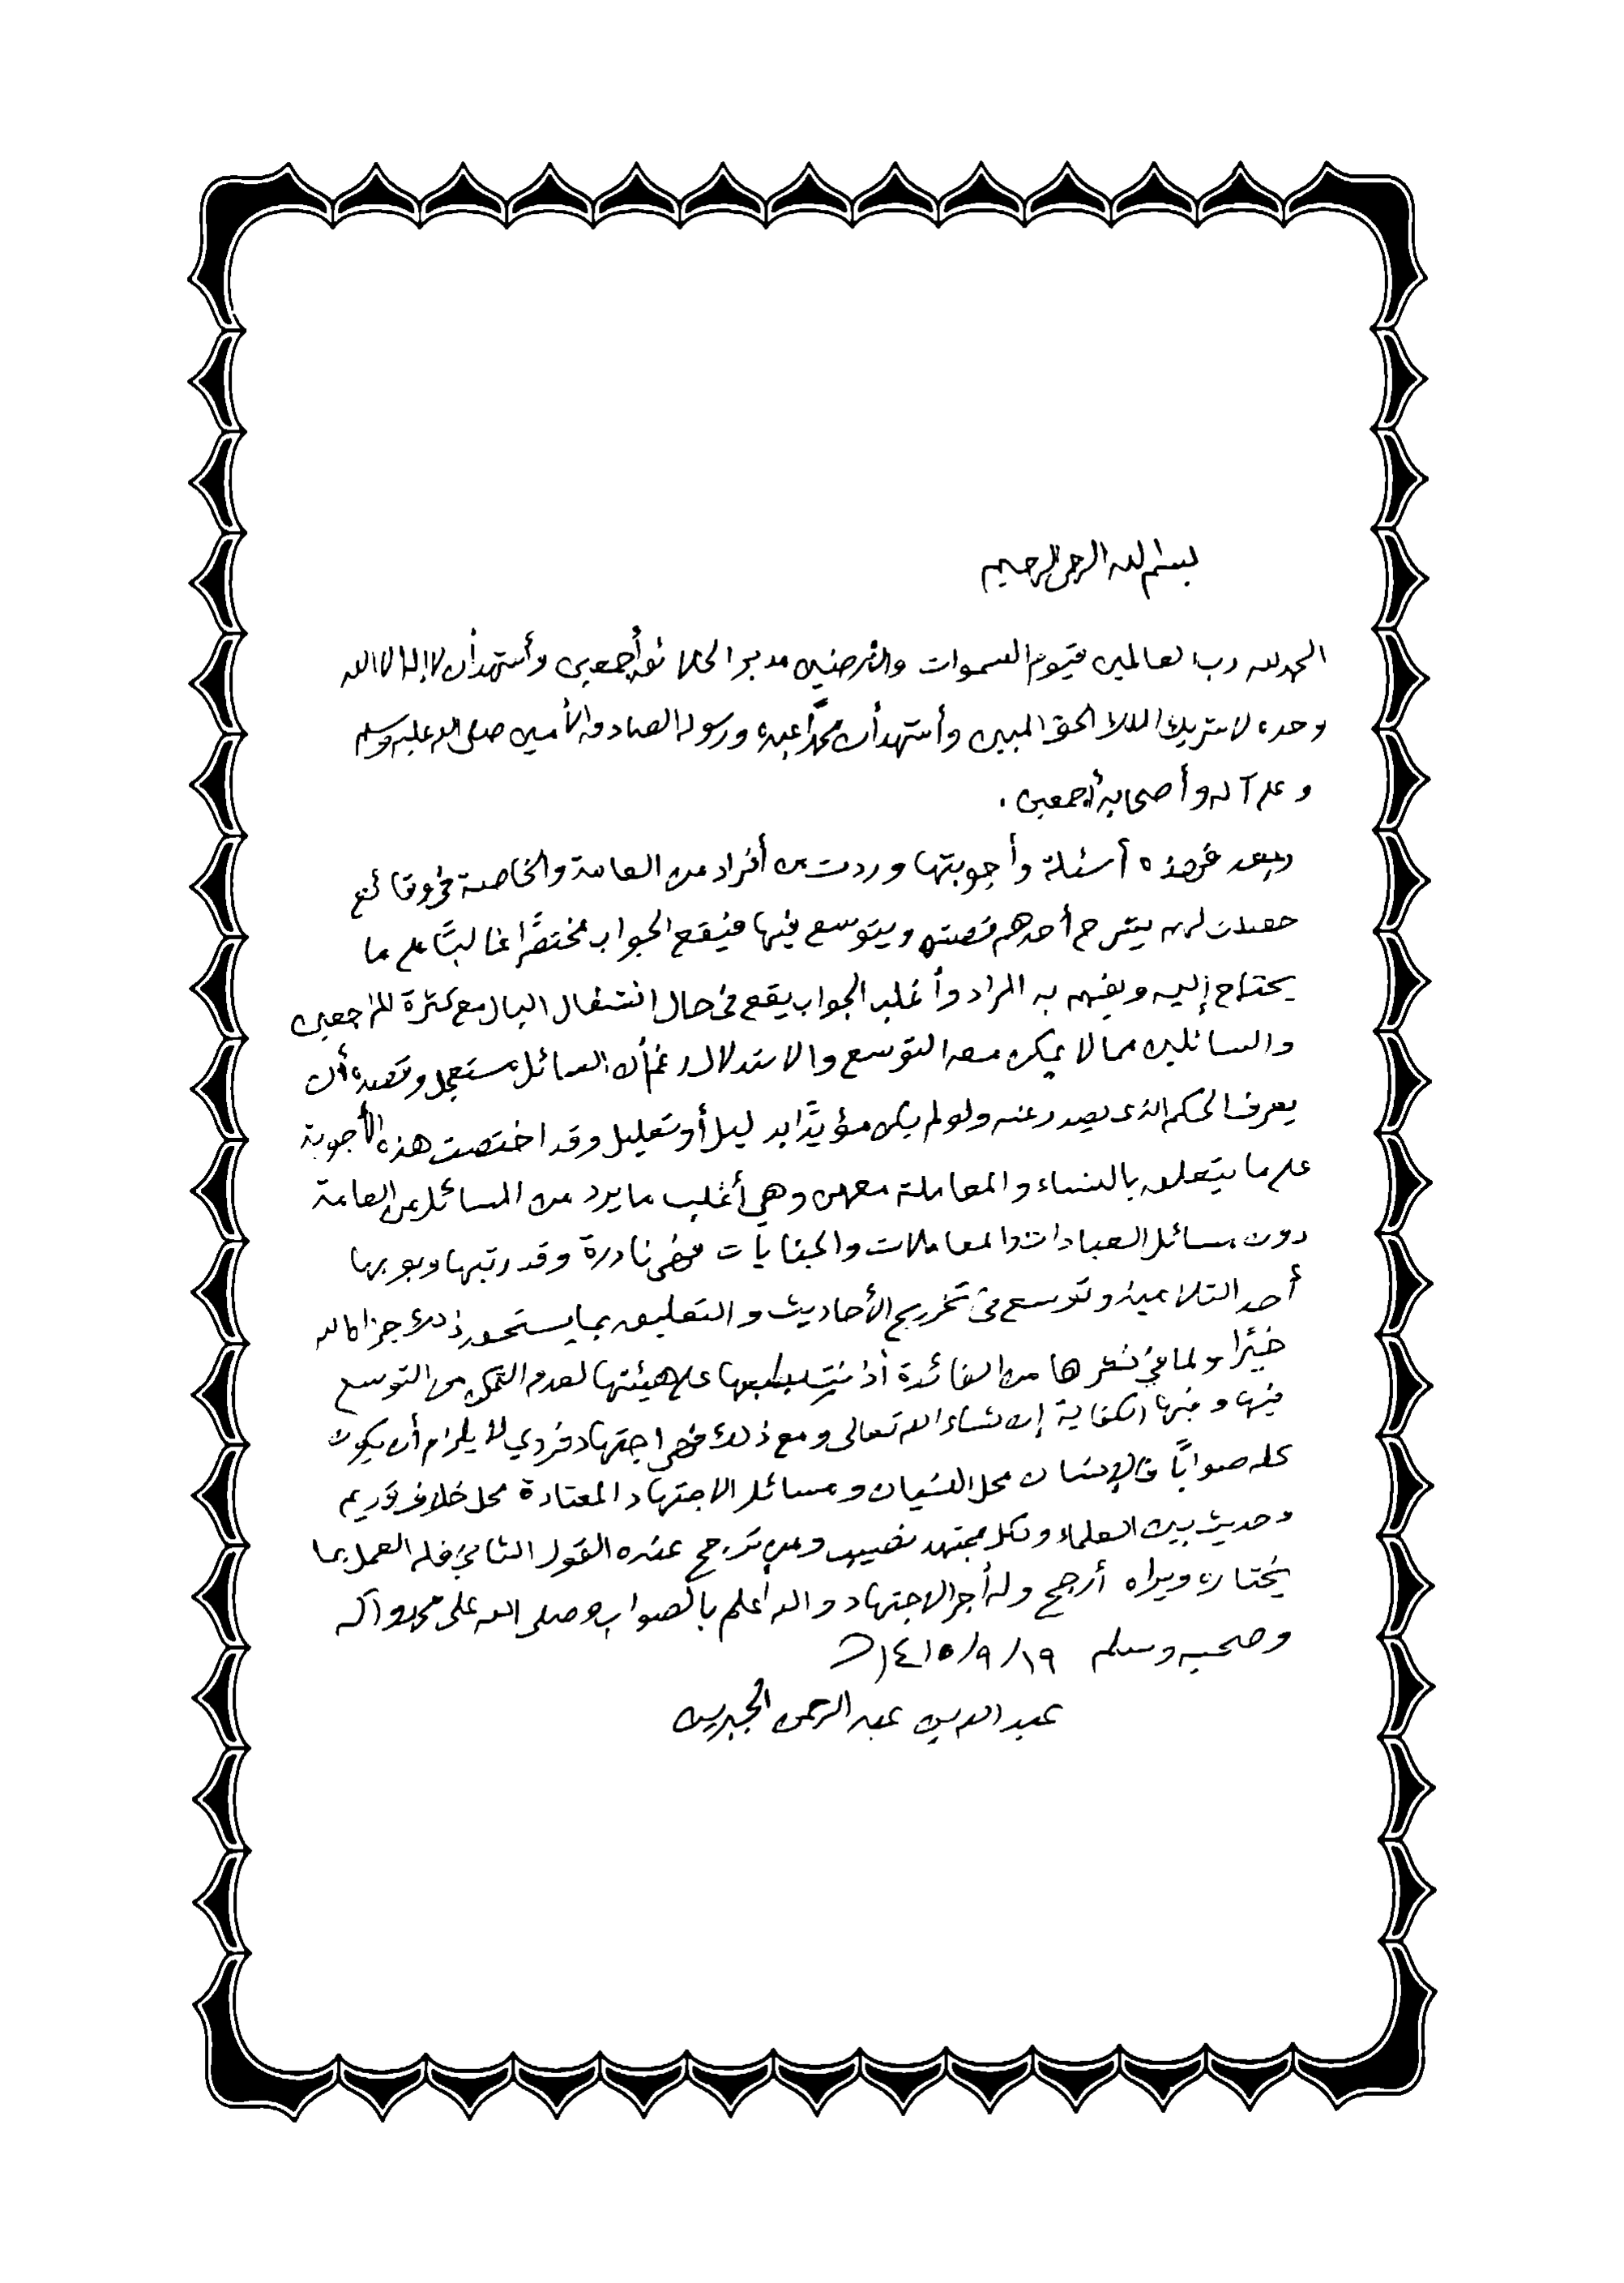 بسم الله الرحمن الرحيم
الحمد لله رب العالمين قيوم السموات والأرضين مدبر الخلائق أجمعين وأشهد أن لا إله إلا الله
وحده لا شريك له الملك الحق المبين وأشهد أن محمدًا عبده ورسوله الصادق الأمين صلى الله عليه وسلم
وعلى آله وأصحابه أجمعين .
وبعد فهذه أسئلة وأجوبتها وردت من أفراد من العامة والخاصة في وقائع
حصلت لهم يشرح أحدهم قصته ويتوسع فيها فيقع الجواب مختصرًا غالبًا على ما
يحتاج إليه ويفهم به المراد وأغلب الجواب يقع في حال انشغال البال مع كثرة المراجعين
والسائلين مما لا يمكن معه التوسع والاستدلال رغم أن السائل مستعجل وقصده أن
يعرف الحكم الذي يصدر عنه ولو لم يكن مؤيدًا بدليل أو تعليل وقد اختصت هذه الأجوبة
على ما يتعلق بالنساء والمعاملة معهن وهي أغلب ما يرد من المسائل من العامة
دون مسائل العبادات والمعاملات والجنايات فهي نادرة وقد رتبها وبوبها
أحد التلاميذ وتوسع في تخريج الأحاديث والتعليق بما يستحق ذلك جزاه الله
خيرًا ولما في نشرها من الفائدة أذنت بطبعها على هيئتها لعدم التمكن من التوسع
فيها وفيها الكفاية إن شاء الله تعالى ومع ذلك فهي اجتهاد فردي لا يلزم أن يكون
كله صوابًا فالإنسان محل النسيان ومسائل الاجتهاد المعتادة محل خلاف قديم
وحديث بين العلماء ولكل مجتهد نصيب ومن ترجح عنده القول الثاني فله العمل بما
يختاره ويراه أرجح وله أجر الاجتهاد والله أعلم بالصواب وصلى الله على محمد وآله
وصحبه وسلم ١٩/٩/١٤١٥هـ
عبد الله بن عبد الرحمن الجبرين